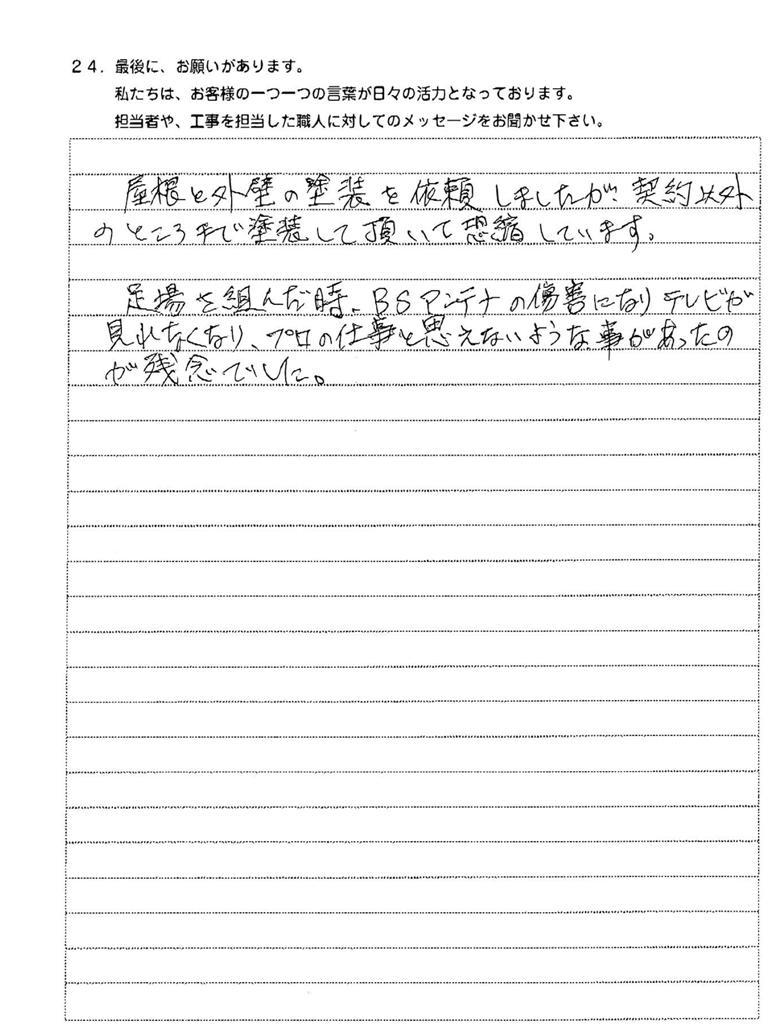 24．最後に、お願いがあります。
私たちは、お客様の一つ一つの言葉が日々の活力となっております。
担当者や、工事を担当した職人に対してのメッセージをお聞かせ下さい。
屋根と外壁の塗装を依頼しましたが、契約以外
のところまで塗装して頂いて恐縮しています。
足場を組んだ時、BSアンテナの傷害になりテレビが
見れなくなり、プロの仕事と思えないような事があったの
が残念でした。